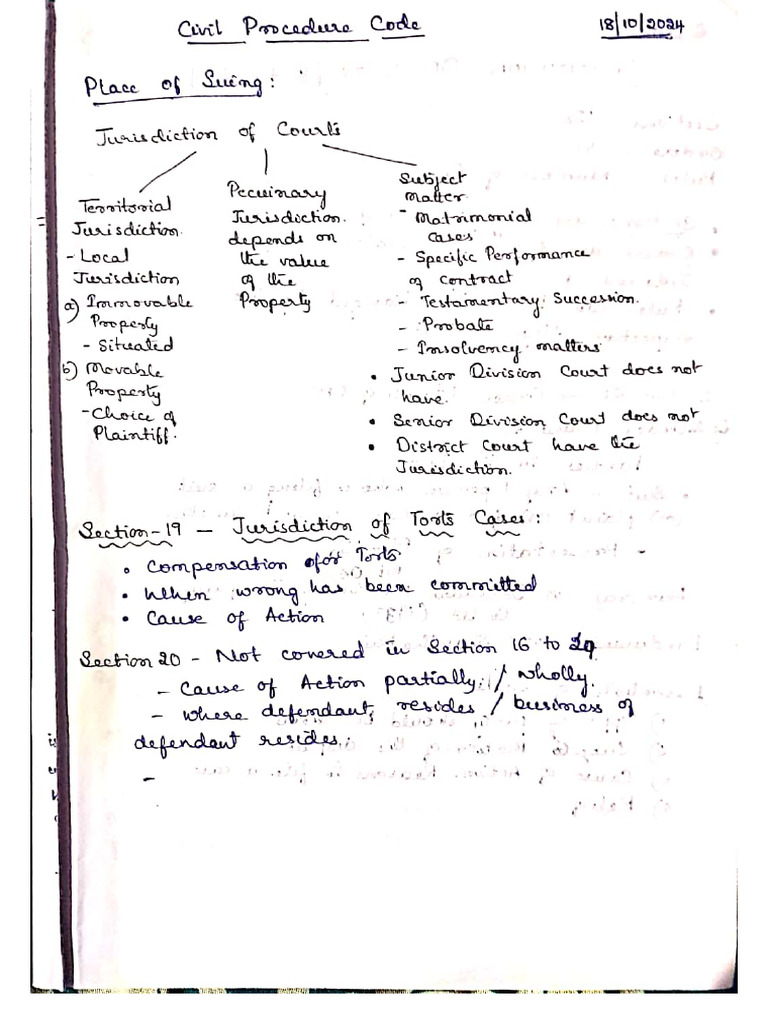 Civil Procedure Code 18/10/2024
Place of Suing:
Jurisdiction of Courts
Territorial
Jurisdiction.
- Local
Jurisdiction
a) Immovable
Property
- Situated
b) Movable
Property
- Choice of
Plaintiff.
Pecuinary
Jurisdiction.
depends on
the value
of the
Property
Subject
Matter
- Matrimonial
cases
- Specific Performance
of contract
- Testamentary Succession.
- Probate
- Insolvency matters
• Junior Division Court does not
have.
• Senior Division Court does not
• District Court have the
Jurisdiction.
Section-19 – Jurisdiction of Torts Cases:
• Compensation for Torts
• When wrong has been committed
• Cause of Action
Section 20 - Not covered in Section 16 to
- Cause of Action partially / wholly.
- where defendant resides / business of
defendant resides.
-